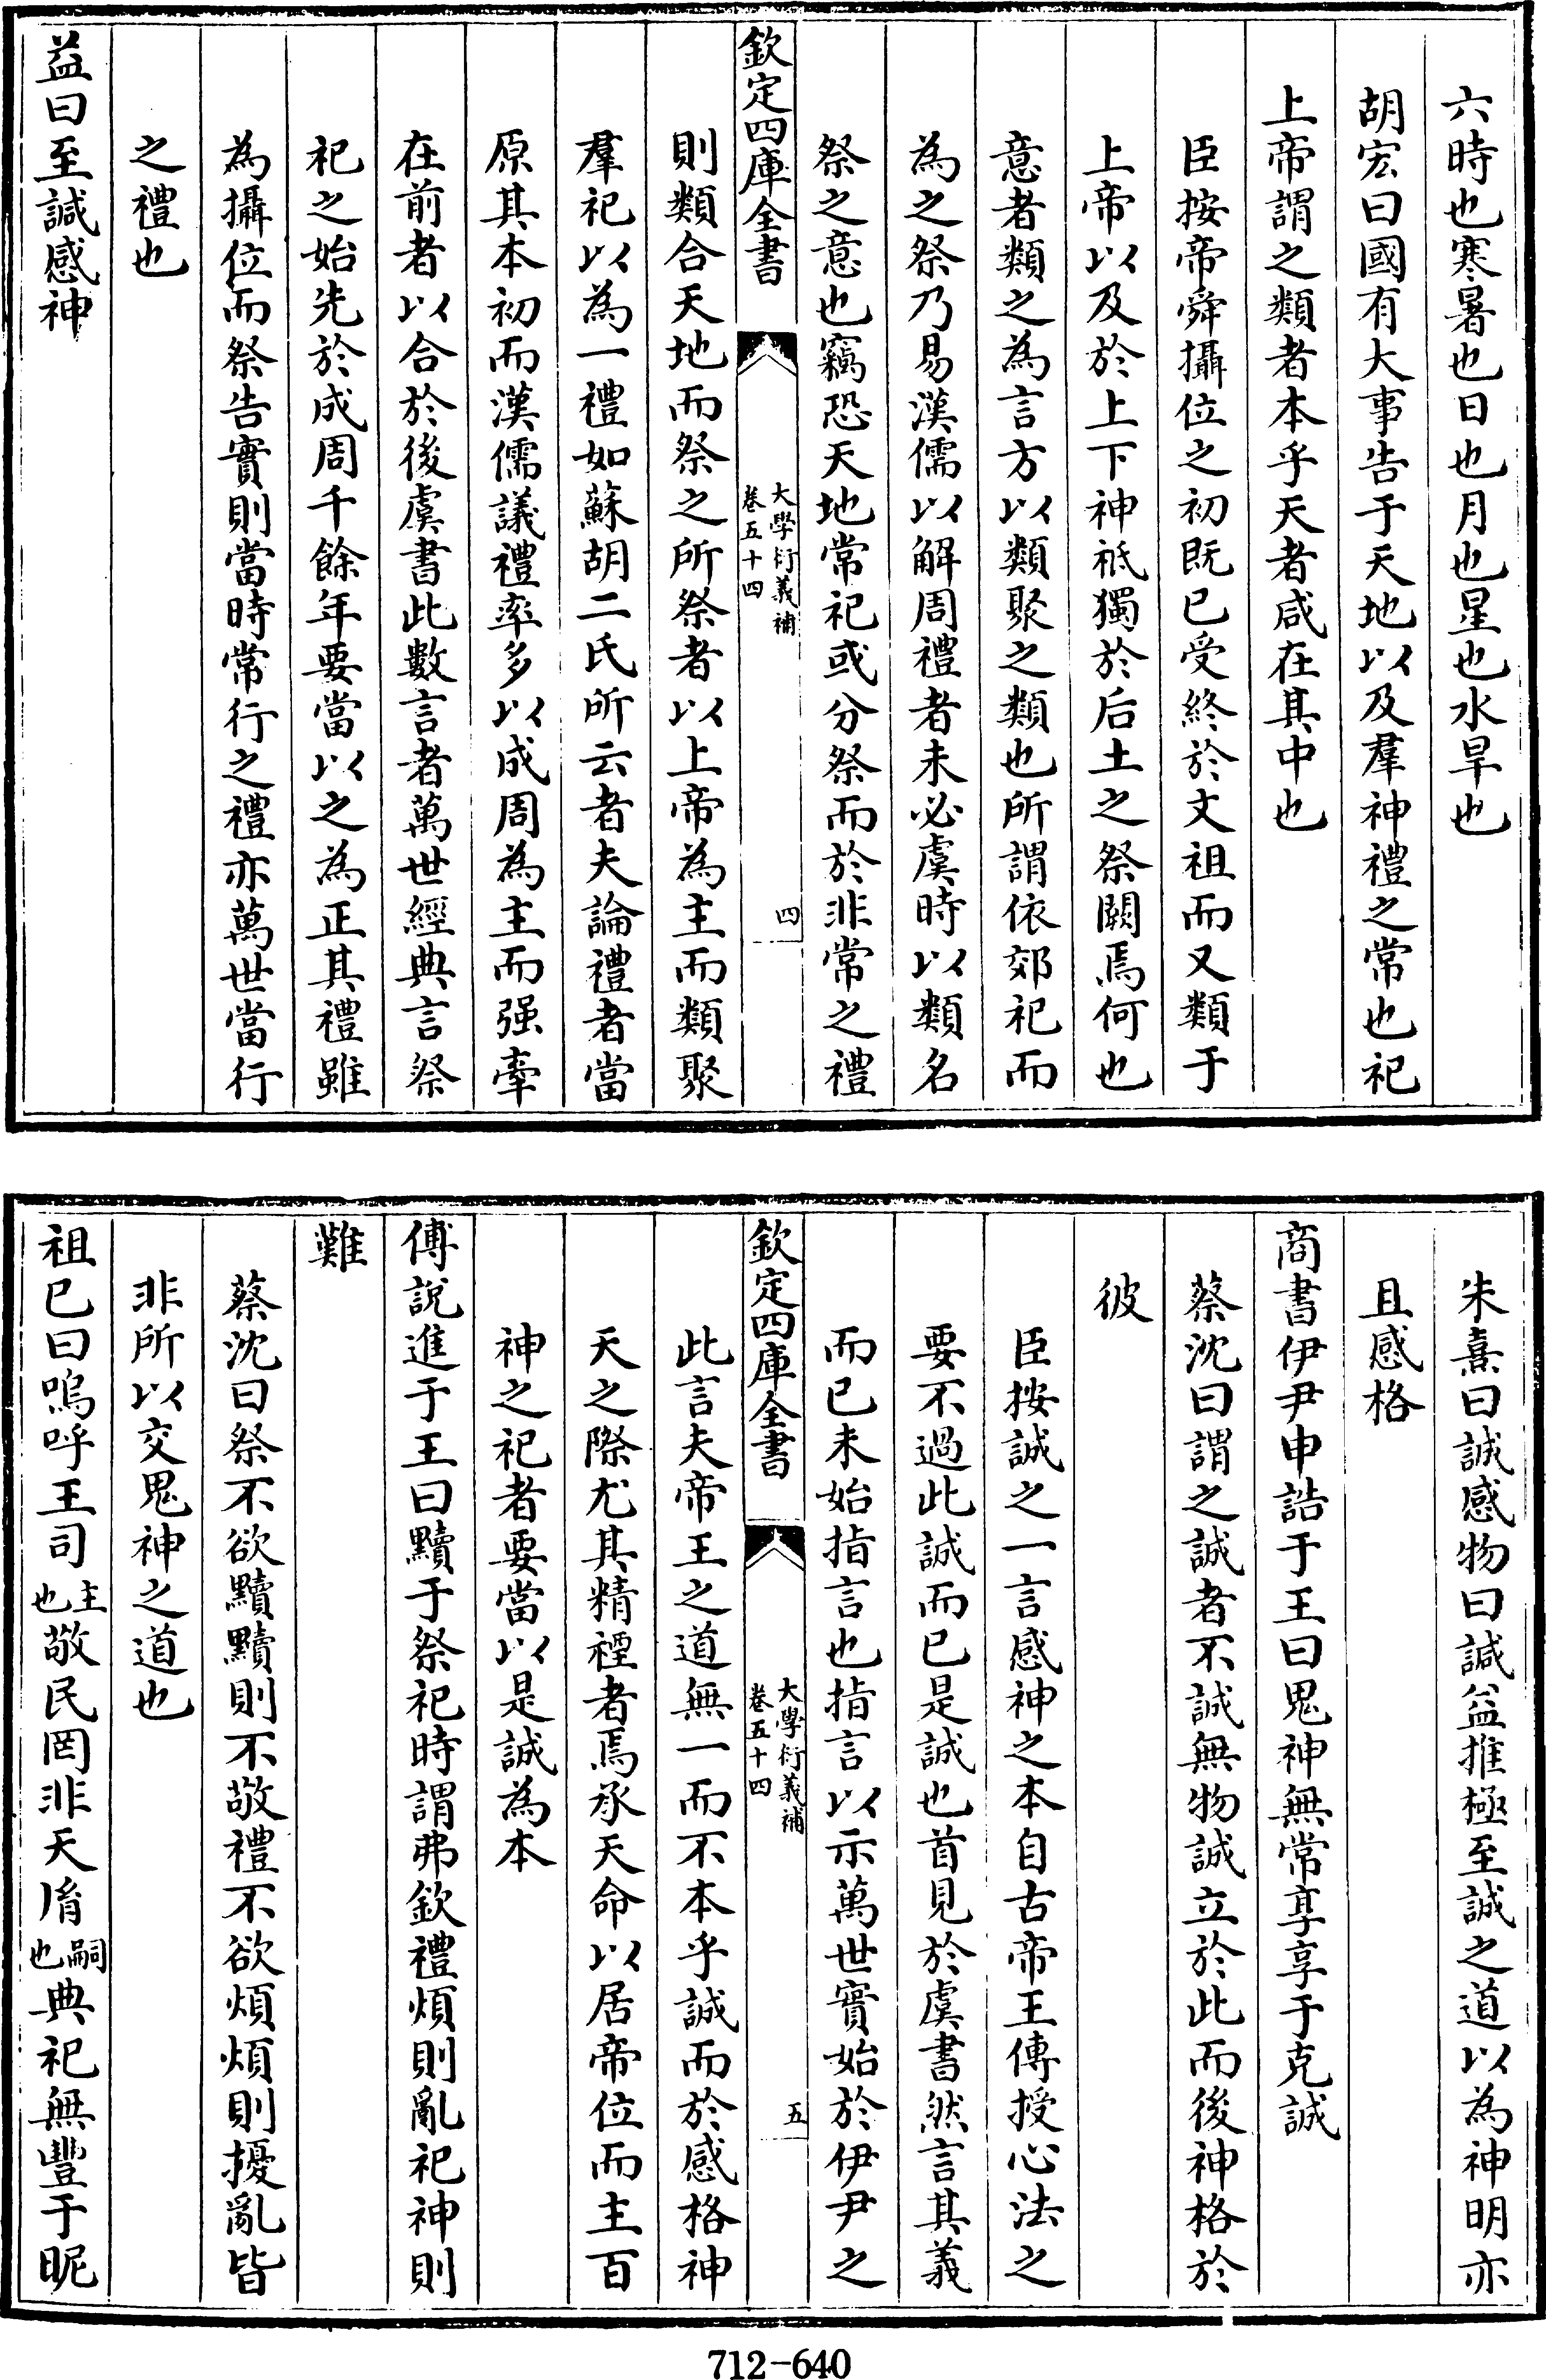 六時也寒暑也日也月也星也水旱也
胡宏曰國有大事告于天地以及羣神禮之常也祀
上帝謂之類者本乎天者咸在其中也
臣按帝舜攝位之初既已受終於文祖而又類于
上帝以及於上下神祇獨於后土之祭闕焉何也
意者類之為言方以類聚之類也所謂依郊祀而
為之祭乃易漢儒以解周禮者未必虞時以類名
祭之意也竊恐天地常祀或分祭而於非常之禮
欽定四庫全書
大學衍義補
卷五十四
四
則類合天地而祭之所祭者以上帝為主而類聚
羣祀以為一禮如蘇胡二氏所云者夫論禮者當
原其本初而漢儒議禮率多以成周為主而强牽
在前者以合於後虞書此數言者萬世經典言祭
祀之始先於成周千餘年要當以之為正其禮雖
為攝位而祭告實則當時常行之禮亦萬世當行
之禮也
益曰至諴感神
朱熹曰誠感物曰諴益推極至誠之道以為神明亦
且感格
商書伊尹申誥于王曰鬼神無常享享于克誠
蔡沈曰謂之誠者不誠無物誠立於此而後神格於
彼
臣按誠之一言感神之本自古帝王傳授心法之
要不過此誠而已是誠也首見於虞書然言其義
而已未始指言也指言以示萬世實始於伊尹之
欽定四庫全書
大學衍義補
卷五十四
五
此言夫帝王之道無一而不本乎誠而於感格神
天之際尤其精禋者焉承天命以居帝位而主百
神之祀者要當以是誠為本
傅說進于王曰黷于祭祀時謂弗欽禮煩則亂祀神則
難
蔡沈曰祭不欲黷黷則不敬禮不欲煩煩則擾亂皆
非所以交鬼神之道也
祖已曰嗚呼王司主也敬民罔非天㣧嗣也典祀無豐于昵
712-640